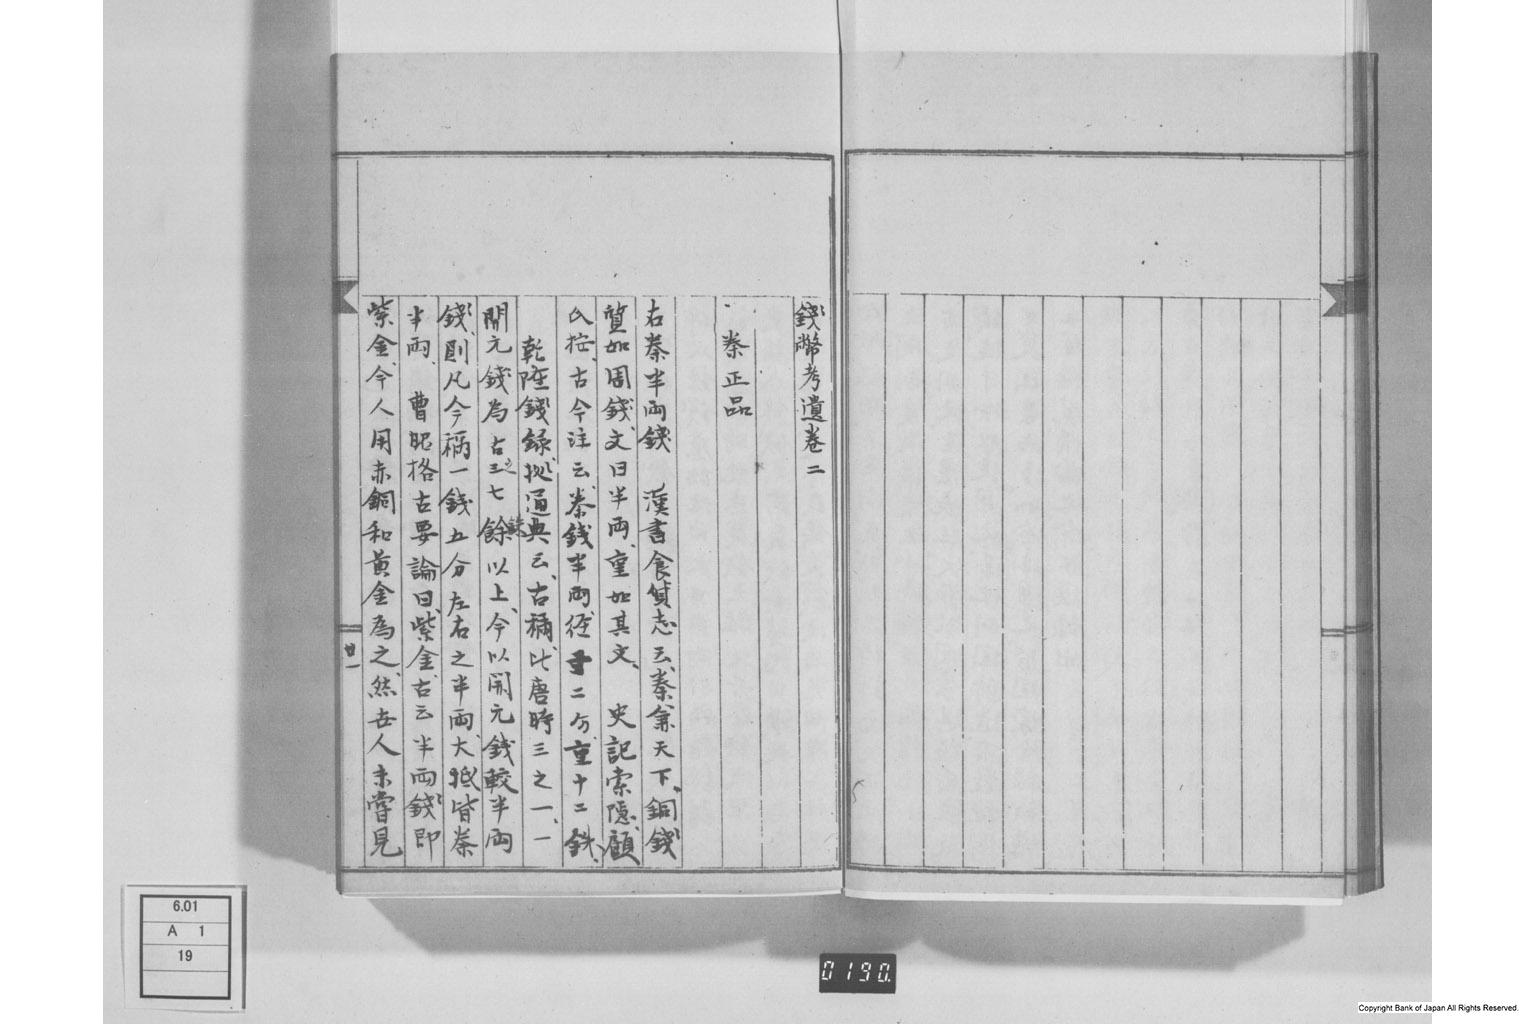 錢幣考遺卷二
秦正品
右秦半兩錢　漢書食貨志云、秦兼天下、銅錢
質如周錢、文曰半兩、重如其文、　史記索隱、顧
氏按、古今注云、秦錢半兩、徑寸二分、重十二銖、
乾隆錢錄、攷通典云、古稱比唐時三之一、一
開元錢為古之三七銖餘以上、今以開元錢較半兩
錢、則凡今稱一錢五分左右之半兩、大抵皆秦
半兩、曹昭格古要論曰、紫金古云半兩錢、即
紫金、今人用赤銅和黃金為之、然世人未嘗見
廿一
6.01
A 1
19
0190.
Copyright Bank of Japan All Rights Reserved.